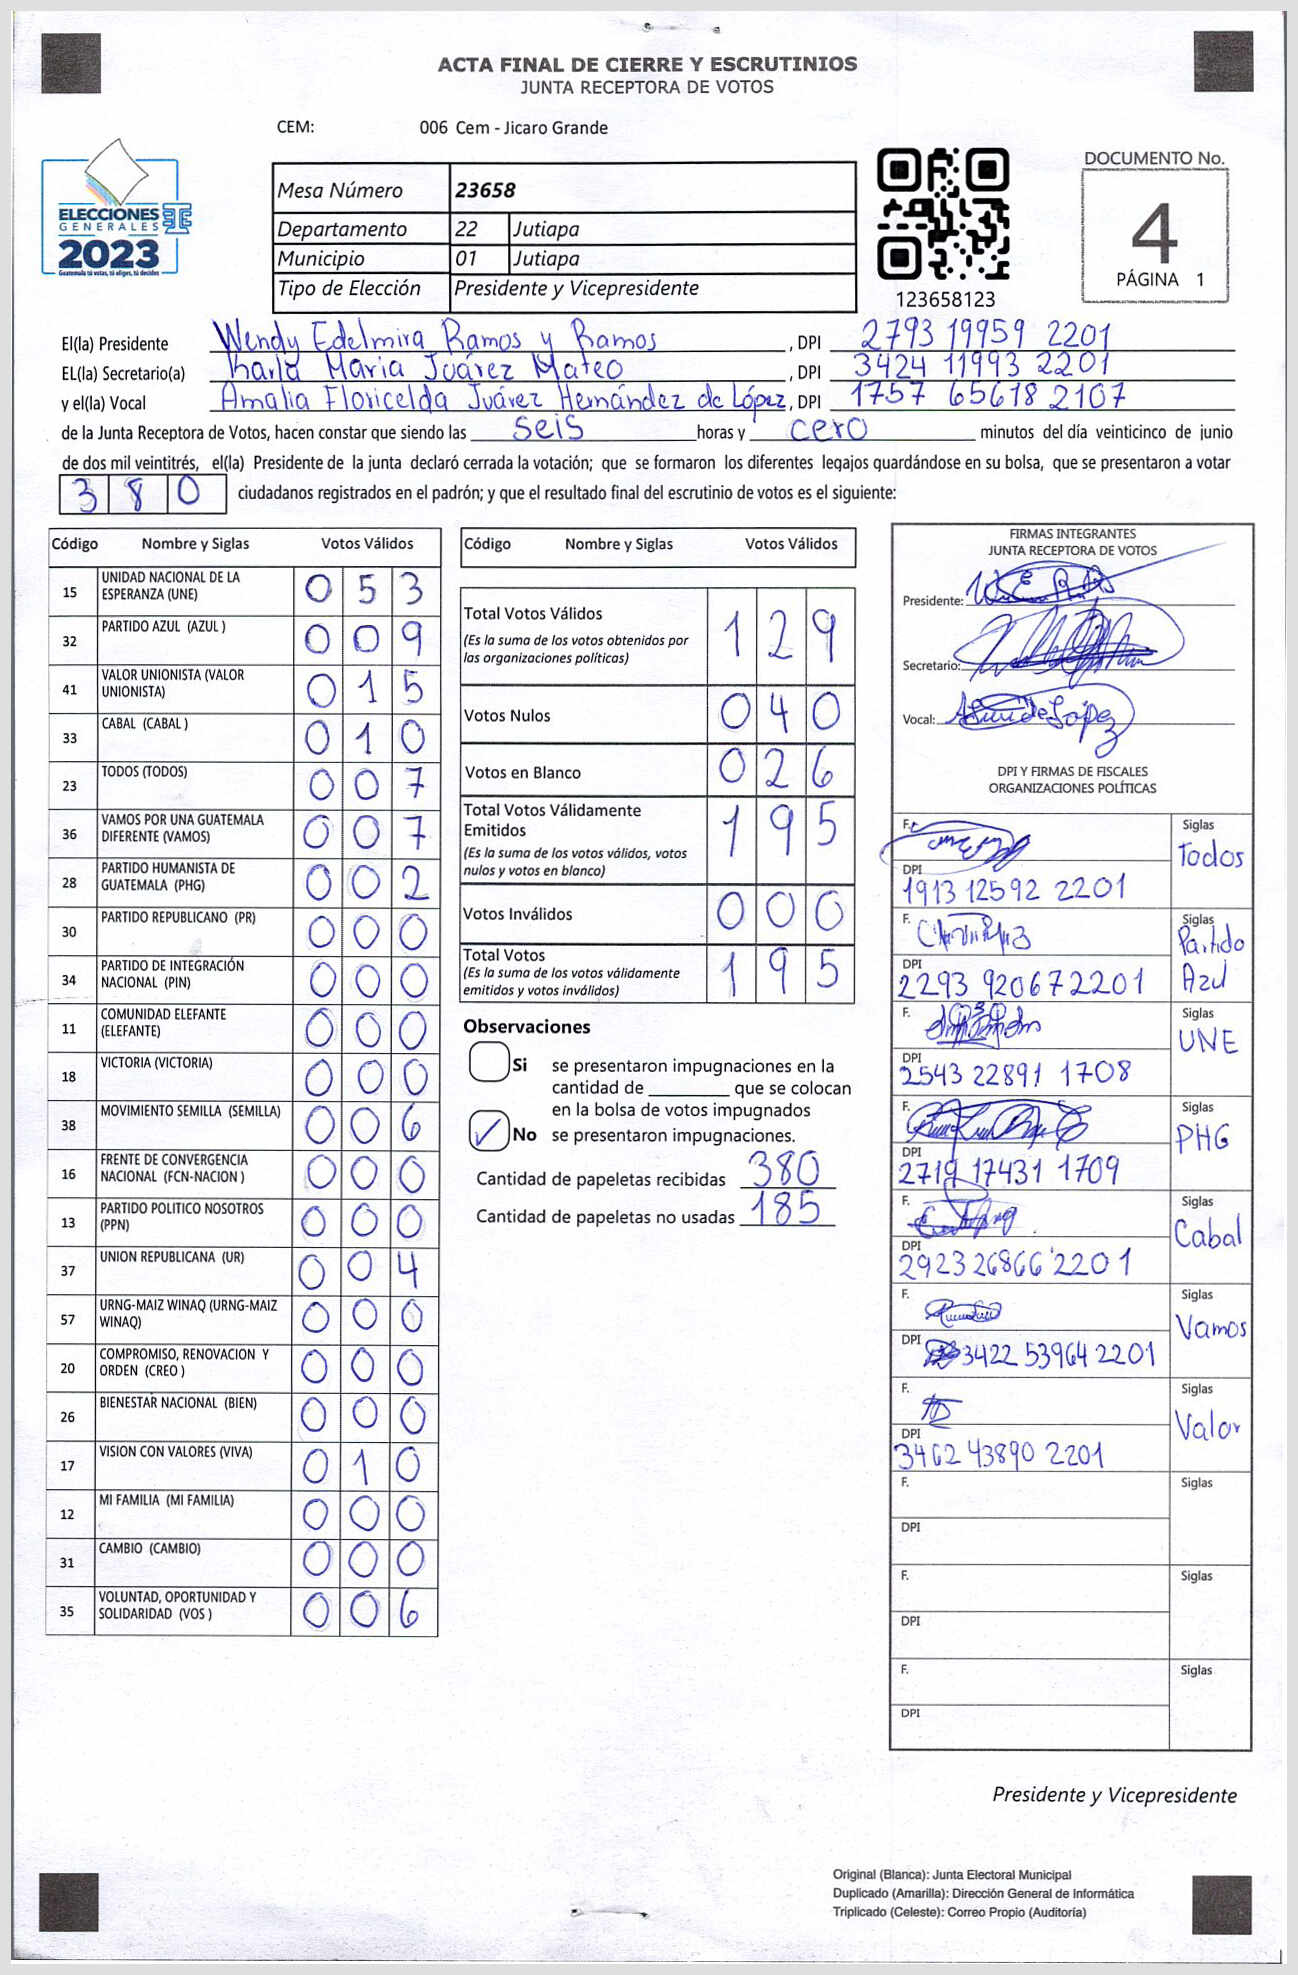 ACTA FINAL DE CIERRE Y ESCRUTINIOS
JUNTA RECEPTORA DE VOTOS
CEM: 006 Cem - Jicaro Grande
ELECCIONES
GENERALES
2023
Guatemala tú votas, tú eliges, tú decides
Mesa Número 23658
Departamento 22 Jutiapa
Municipio 01 Jutiapa
Tipo de Elección Presidente y Vicepresidente
123658123
DOCUMENTO No.
4
PÁGINA 1
El(la) Presidente Wendy Edelmira Ramos y Ramos, DPI 2793 19959 2201
EL(la) Secretario(a) Karla María Juárez Mateo, DPI 3424 11993 2201
y el(la) Vocal Amalia Floricelda Juárez Hernández de López, DPI 1757 65618 2107
de la Junta Receptora de Votos, hacen constar que siendo las seis horas y cero minutos del día veinticinco de junio
de dos mil veintitrés, el(la) Presidente de la junta declaró cerrada la votación; que se formaron los diferentes legajos quardándose en su bolsa, que se presentaron a votar
380 ciudadanos registrados en el padrón; y que el resultado final del escrutinio de votos es el siguiente:
Código Nombre y Siglas Votos Válidos
15 UNIDAD NACIONAL DE LA
ESPERANZA (UNE) 053
32 PARTIDO AZUL (AZUL ) 009
41 VALOR UNIONISTA (VALOR
UNIONISTA) 015
33 CABAL (CABAL ) 010
23 TODOS (TODOS) 007
36 VAMOS POR UNA GUATEMALA
DIFERENTE (VAMOS) 007
28 PARTIDO HUMANISTA DE
GUATEMALA (PHG) 002
30 PARTIDO REPUBLICANO (PR) 000
34 PARTIDO DE INTEGRACIÓN
NACIONAL (PIN) 000
11 COMUNIDAD ELEFANTE
(ELEFANTE) 000
18 VICTORIA (VICTORIA) 000
38 MOVIMIENTO SEMILLA (SEMILLA) 006
16 FRENTE DE CONVERGENCIA
NACIONAL (FCN-NACION ) 000
13 PARTIDO POLITICO NOSOTROS
(PPN) 000
37 UNION REPUBLICANA (UR) 004
57 URNG-MAIZ WINAQ (URNG-MAIZ
WINAQ) 000
20 COMPROMISO, RENOVACION Y
ORDEN (CREO ) 000
26 BIENESTAR NACIONAL (BIEN) 000
17 VISION CON VALORES (VIVA) 010
12 MI FAMILIA (MI FAMILIA) 000
31 CAMBIO (CAMBIO) 000
35 VOLUNTAD, OPORTUNIDAD Y
SOLIDARIDAD (VOS ) 006
Código Nombre y Siglas Votos Válidos
Total Votos Válidos 129
(Es la suma de los votos obtenidos por
las organizaciones políticas)
Votos Nulos 040
Votos en Blanco 026
Total Votos Válidamente
Emitidos 195
(Es la suma de los votos válidos, votos
nulos y votos en blanco)
Votos Inválidos 000
Total Votos 195
(Es la suma de los votos válidamente
emitidos y votos inválidos)
Observaciones
Si se presentaron impugnaciones en la
cantidad de ________ que se colocan
en la bolsa de votos impugnados
No se presentaron impugnaciones.
Cantidad de papeletas recibidas 380
Cantidad de papeletas no usadas 185
FIRMAS INTEGRANTES
JUNTA RECEPTORA DE VOTOS
Presidente:
Secretario:
Vocal:
DPI Y FIRMAS DE FISCALES
ORGANIZACIONES POLÍTICAS
F. Siglas
Todos
DPI
1913 12592 2201
F. Siglas
Partido
Azul
DPI
2293 92067 2201
F. Siglas
UNE
DPI
2543 22891 1708
F. Siglas
PHG
DPI
2719 17431 1709
F. Siglas
Cabal
DPI
2923 26866 2201
F. Siglas
Vamos
DPI 3422 53964 2201
F. Siglas
Valor
DPI
3462 43890 2201
F. Siglas
DPI
F. Siglas
DPI
F. Siglas
DPI
Presidente y Vicepresidente
Original (Blanca): Junta Electoral Municipal
Duplicado (Amarilla): Dirección General de Informática
Triplicado (Celeste): Correo Propio (Auditoría)